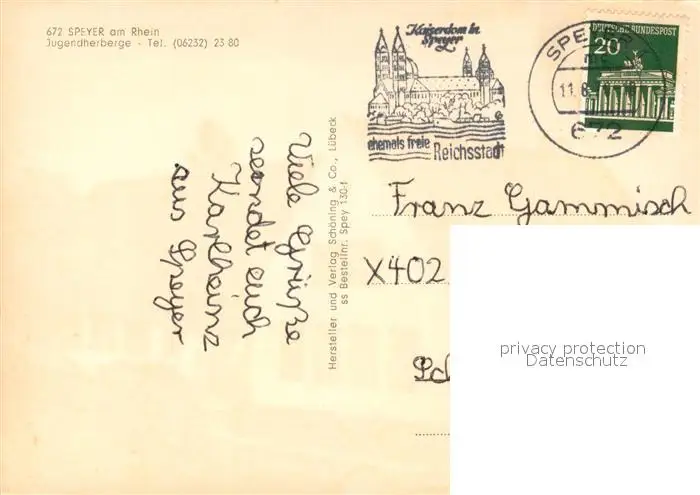 672 SPEYER am Rhein
Jugendherberge - Tel. (06232) 23 80
Viele Grüße
sendet euch
Karlheinz
aus Speyer
Hersteller und Verlag Schöning & Co., Lübeck
ss Bestellnr. Spey 130-f
Kaiserdom in
Speyer
ehemals freie
Reichsstadt
SPEYER
11.8
672
DEUTSCHE BUNDESPOST
20
Franz Gammisch
X402
privacy protection
Datenschutz